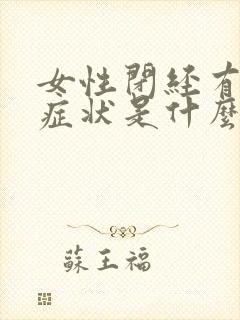 女性閉経有
症状是什麼
蘇王福